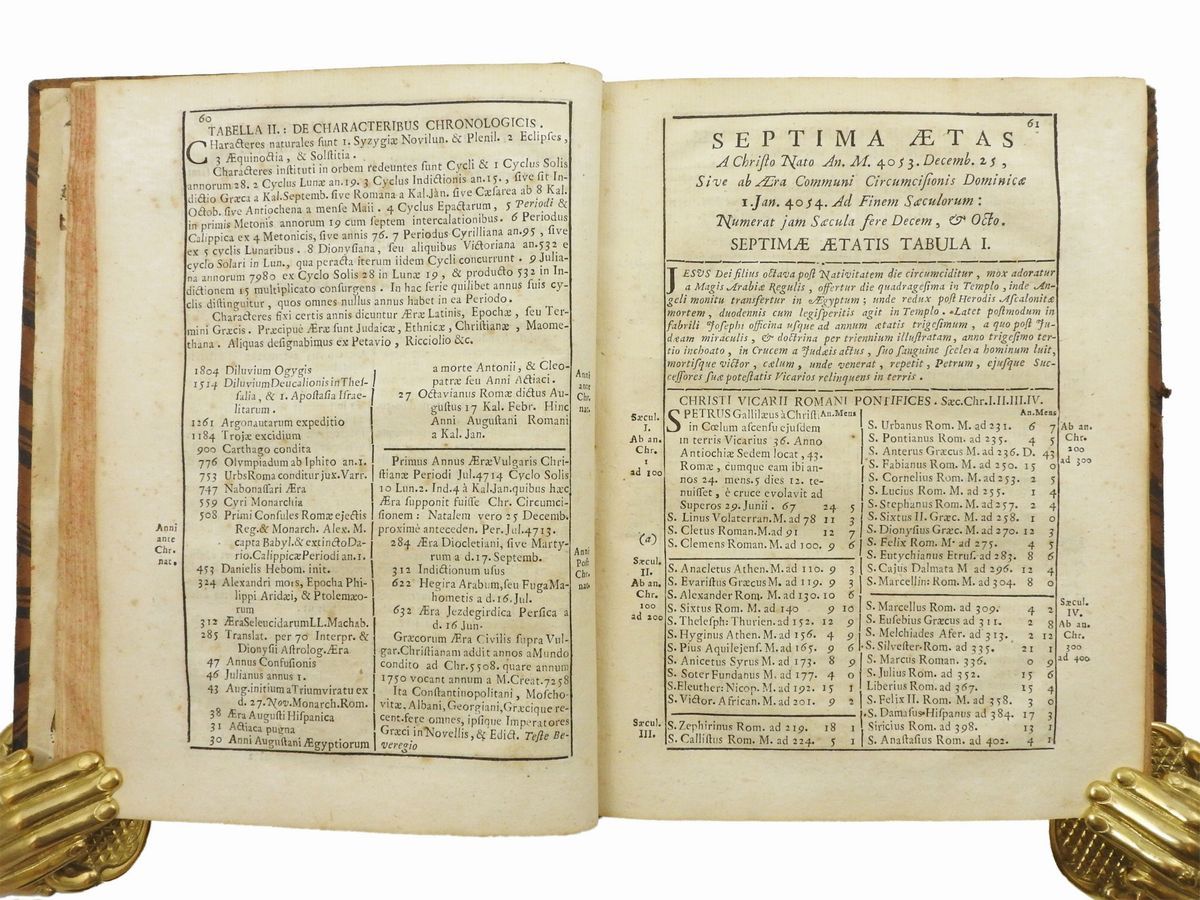 60
TABELLA II.: DE CHARACTERIBUS CHRONOLOGICIS.
CHaracteres naturales sunt 1. Syzygiæ Novilun. & Plenil. 2 Eclipses,
3 Æquinoctia, & Solstitia.
Characteres instituti in orbem redeuntes sunt Cycli & 1 Cyclus Solis
annorum 28. 2 Cyclus Lunæ an.19. 3 Cyclus Indictionis an.15., sive sit In-
dictio Græca a Kal.Septemb. sive Romana a Kal.Jan. sive Cæsarea ab 8 Kal.
Octob. sive Antiochena a mense Maii. 4 Cyclus Epactarum, 5 Periodi &
in primis Metonis annorum 19 cum septem intercalationibus. 6 Periodus
Calippica ex 4 Metonicis, sive annis 76. 7 Periodus Cyrilliana an.95, sive
ex 5 cyclis Lunaribus. 8 Dionysiana, seu aliquibus Victoriana an.532 e
cyclo Solari in Lun., qua peracta iterum iidem Cycli concurrunt. 9 Julia-
na annorum 7980 ex Cyclo Solis 28 in Lunæ 19, & producto 532 in In-
dictionem 15 multiplicato consurgens. In hac serie quilibet annus suis cy-
clis distinguitur, quos omnes nullus annus habet in ea Periodo.
Characteres fixi certis annis dicuntur Æræ Latinis, Epochæ, seu Ter-
mini Græcis. Præcipuè Æræ sunt Judaicæ, Ethnicæ, Christianæ, Maome-
thanæ. Aliquas designabimus ex Petavio, Ricciolio &c.
1804 Diluvium Ogygis
1514 Diluvium Deucalionis in Thes-
salia, & 1. Apostasia Israe-
litarum.
1261 Argonautarum expeditio
1184 Trojæ excidium
900 Carthago condita
776 Olympiadum ab Iphito an.1.
753 Urbs Roma conditur jux. Varr.
747 Nabonassari Æra
559 Cyri Monarchia
508 Primi Consules Romæ ejectis
Reg.& Monarch. Alex. M.
capta Babyl.& extincto Da-
rio.Calippicæ Periodi an.1.
453 Danielis Hebom. init.
324 Alexandri mors, Epocha Phi-
lippi Aridæi, & Ptolemæo-
rum
312 Æra Seleucidarum LL.Machab.
285 Translat. per 70 Interpr. &
Dionysii Astrolog. Æra
47 Annus Confusionis
46 Julianus annus 1.
43 Aug.initium a Triumviratu ex
d. 27. Nov. Monarch. Rom.
38 Æra Augusti Hispanica
31 Actiaca pugna
30 Anni Augustani Ægyptiorum
Anni
ante
Chr.
nat.
a morte Antonii, & Cleo-
patræ seu Anni Actiaci.
27 Octavianus Romæ dictus Au-
gustus 17 Kal. Febr. Hinc
Anni Augustani Romani
a Kal. Jan.
Anni
ante
Chr.
nat.
Primus Annus Æræ Vulgaris Chri-
stianæ Periodi Jul.4714 Cyclo Solis
10 Lun.2. Ind.4 à Kal.Jan.quibus hæc
Æra supponit fuisse Chr. Circumci-
sionem: Natalem vero 25 Decemb.
proximè anteceden. Per.Jul.4713.
284 Æra Diocletiani, sive Marty-
rum a d.17. Septemb.
312 Indictionum usus
622 Hegira Arabum, seu Fuga Ma-
hometis a d.16. Jul.
632 Æra Jezdegirdica Persica a
d. 16 Jun.
Græcorum Æra Civilis supra Vul-
gar.Christianam addit annos a Mundo
condito ad Chr.5508. quare annum
1750 vocant annum a M.Creat.7258
Ita Constantinopolitani, Moscho-
vitæ, Albani, Georgiani, Græcique re-
cent.fere omnes, ipsique Imperatores
Græci in Novellis, & Edict. Teste Be-
veregio
Anni
Post
Chr.
nat.
61
SEPTIMA ÆTAS
A Christo Nato An. M. 4053. Decemb. 25,
Sive ab Æra Communi Circumcisionis Dominicæ
1. Jan. 4054. Ad Finem Sæculorum:
Numerat jam Sæcula fere Decem, & Octo.
SEPTIMÆ ÆTATIS TABULA I.
JESUS Dei filius octava post Nativitatem die circumciditur, mox adoratur
a Magis Arabiæ Regulis, offertur die quadragesima in Templo, inde An-
geli monitu transfertur in Ægyptum; unde redux post Herodis Ascalonitæ
mortem, duodennis cum legisperitis agit in Templo. Latet postmodum in
fabrili Josephi officina usque ad annum ætatis trigesimum, a quo post Ju-
dæam miraculis, & doctrina per triennium illustratam, anno trigesimo ter-
tio inchoato, in Crucem a Judæis actus, suo sanguine scelera hominum luit,
mortisque victor, cælum, unde venerat, repetit, Petrum, ejusque Suc-
cessores suæ potestatis Vicarios relinquens in terris.
CHRISTI VICARII ROMANI PONTIFICES. Sæc.Chr.I.II.III.IV.
Sæcul.
I.
Ab an.
Chr.
1
ad 100
An.Mens
S PETRUS Gallilæus à Christi
in Cœlum ascensu ejusdem
in terris Vicarius 36. Anno
Antiochiæ Sedem locat, 43.
Romæ, cumque eam ibi an-
nos 24. mens.5 dies 12. te-
nuisset, è cruce evolavit ad
Superos 29. Junii. 67 24 5
S. Linus Volaterran.M. ad 78 11 3
S. Cletus Roman.M.ad 91 12 7
S. Clemens Roman.M. ad 100. 9 6
(a)
Sæcul.
II.
Ab an.
Chr.
100
ad 200
S. Anacletus Athen.M. ad 110. 9 3
S. Evaristus Græcus M. ad 119. 9 3
S. Alexander Rom. M. ad 130. 10 6
S. Sixtus Rom. M. ad 140 9 10
S. Thelesph: Thurien. ad 152. 12 9
S. Hyginus Athen.M. ad 156. 4 9
S. Pius Aquilejens.M. ad 165. 9 6
S. Anicetus Syrus M. ad 173. 8 9
S. Soter Fundanus M. ad 177. 4 0
S.Eleuther: Nicop. M.ad 192. 15 1
S. Victor. African.M. ad 201. 9 2
Sæcul.
III.
S. Zephirinus Rom. ad 219. 18 1
S. Callistus Rom. M. ad 224. 5 1
An.Mens
S. Urbanus Rom. M. ad 231. 6 7
S. Pontianus Rom. M. ad 235. 4 5
S. Anterus Græcus M. ad 236. D. 43
S. Fabianus Rom. M. ad 250. 15 0
S. Cornelius Rom. M. ad 253. 2 5
S. Lucius Rom. M. ad 255. 1 4
S. Stephanus Rom. M. ad 257. 2 4
S. Sixtus II. Græc. M. ad 258. 1 0
S. Dionysius Græc. M. ad 270. 12 3
S. Felix Rom. M. ad 275. 4 5
S. Eutychianus Etrus. ad 283. 8 6
S. Cajus Dalmata M ad 296. 12 4
S. Marcellin: Rom. M. ad 304. 8 0
Ab an.
Chr.
200
ad 300
S. Marcellus Rom. ad 309. 4 2
S. Eusebius Græcus ad 311. 2 8
S. Melchiades Afer. ad 313. 2 12
S. Silvester Rom. ad 335. 21 1
S. Marcus Roman. 336. 0 9
S. Julius Rom. ad 352. 15 6
Liberius Rom. ad 367. 15 4
S. Felix II. Rom. M. ad 358. 3 0
S. Damasus Hispanus ad 384. 17 3
Siricius Rom. ad 398. 13 1
S. Anastasius Rom. ad 402. 4 1
Sæcul.
IV.
Ab an.
Chr.
300
ad 400